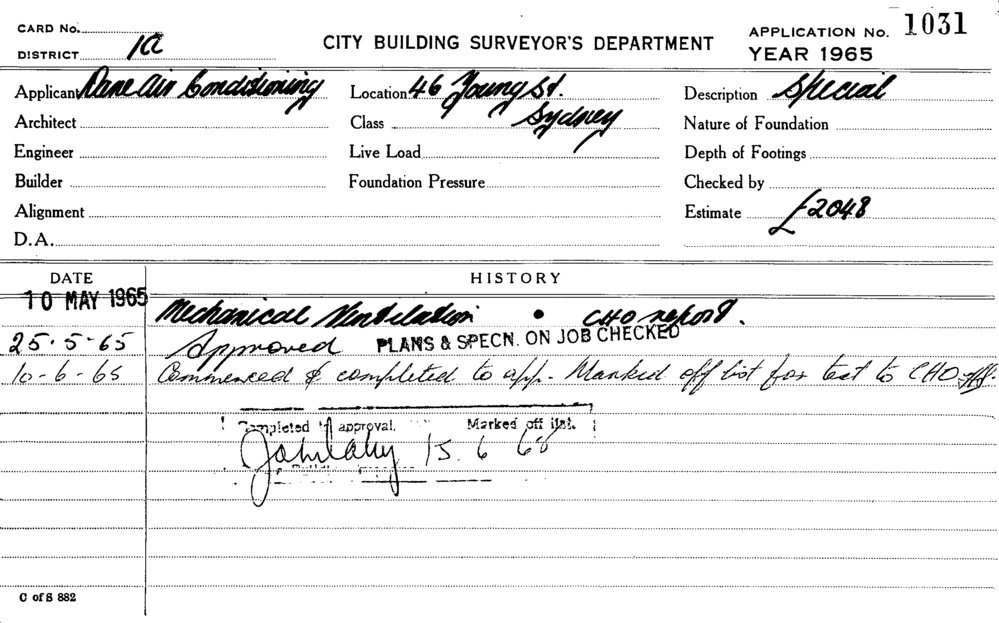 CARD No.
DISTRICT 1a
CITY BUILDING SURVEYOR'S DEPARTMENT
APPLICATION No. 1031
YEAR 1965
Applicant Dane Air Conditioning
Location 46 Young St. Sydney
Description Special
Architect
Class
Nature of Foundation
Engineer
Live Load
Depth of Footings
Builder
Foundation Pressure
Checked by
Alignment
Estimate £2048
D.A.
DATE HISTORY
10 MAY 1965 Mechanical Ventilation • CHO report.
25.5.65 Approved PLANS & SPECN. ON JOB CHECKED
10-6-65 Commenced & completed to app. Marked off list for test to CHO
Completed approval. Marked off list.
15.6.68
C of S 882